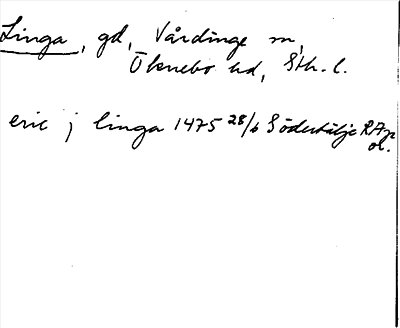 Linga, gd, Vårdinge sn,
Öknebo hd, Sth. l.
eric j linga 1475 28/6 Södertälje RAp
or.